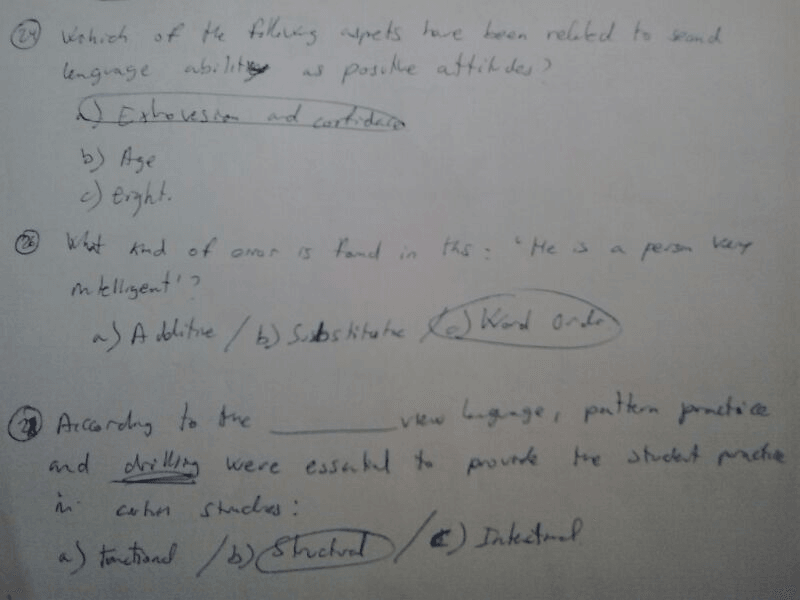 (24) Which of the following aspets have been related to second
language ability as positive attitudes?
a) Extroversion and confidence
b) Age
c) Eight.
(26) What kind of error is found in this: "He is a person very
intelligent"?
a) Additive / b) Substitutie / c) Word Order
According to the ________ view language, pattern practice
and drilling were essential to provide the student practice
in certain structures:
a) Functional / b) Structural / c) Interactional